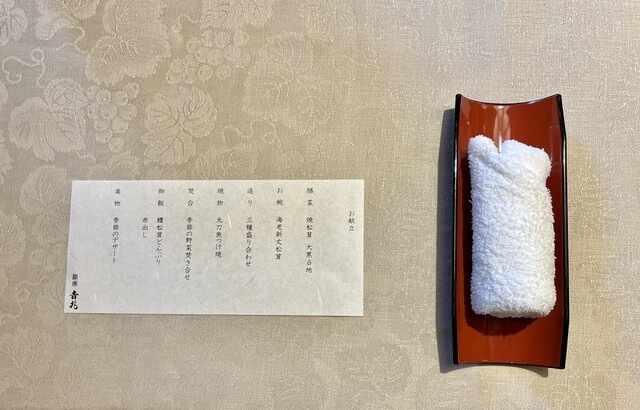 お献立
膳菜 焼松茸 大黒占地
お椀 海老新丈松茸
造り 三種盛り合わせ
焼物 太刀魚つけ焼
焚合 季節の野菜焚き合せ
御飯 鱧松茸どんぶり
赤出し
果物 季節のデザート
銀座